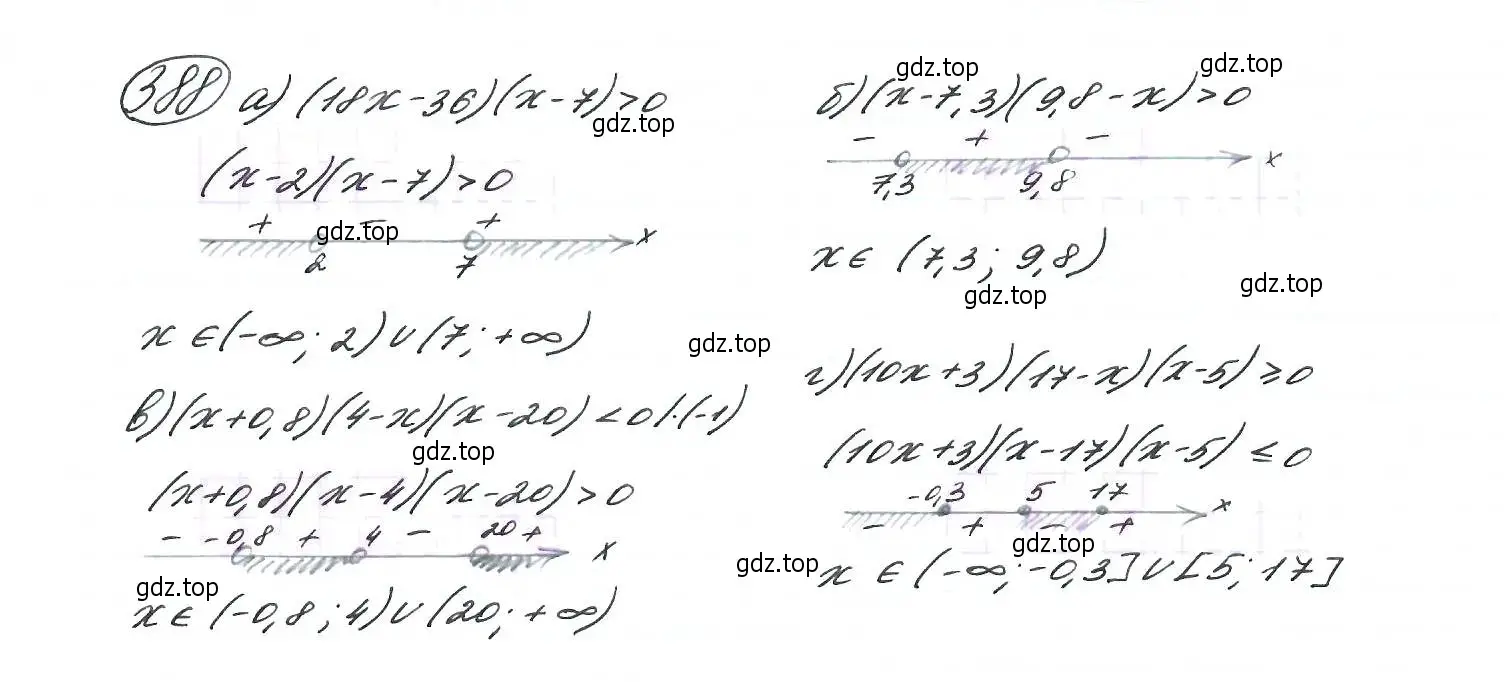 388 а) (18x-36)(x-7)>0
gdz.top
(x-2)(x-7)>0
+ - + x
gdz.top
2 7
x∈(-∞; 2)∪(7; +∞)
gdz.top
в)(x+0,8)(4-x)(x-20)<0 |·(-1)
gdz.top
(x+0,8)(x-4)(x-20)>0
- -0,8 + 4 - 20 + x
gdz.top
x∈(-0,8; 4)∪(20; +∞)
gdz.top gdz.top
б)(x-7,3)(9,8-x)>0
- + - x
7,3 9,8
x∈ (7,3; 9,8)
gdz.top gdz.top
г)(10x+3)(17-x)(x-5)≥0
(10x+3)(x-17)(x-5)≤0
-0,3 5 17 x
- + - +
gdz.top
gdz.top
x∈(-∞; -0,3]∪[5; 17]